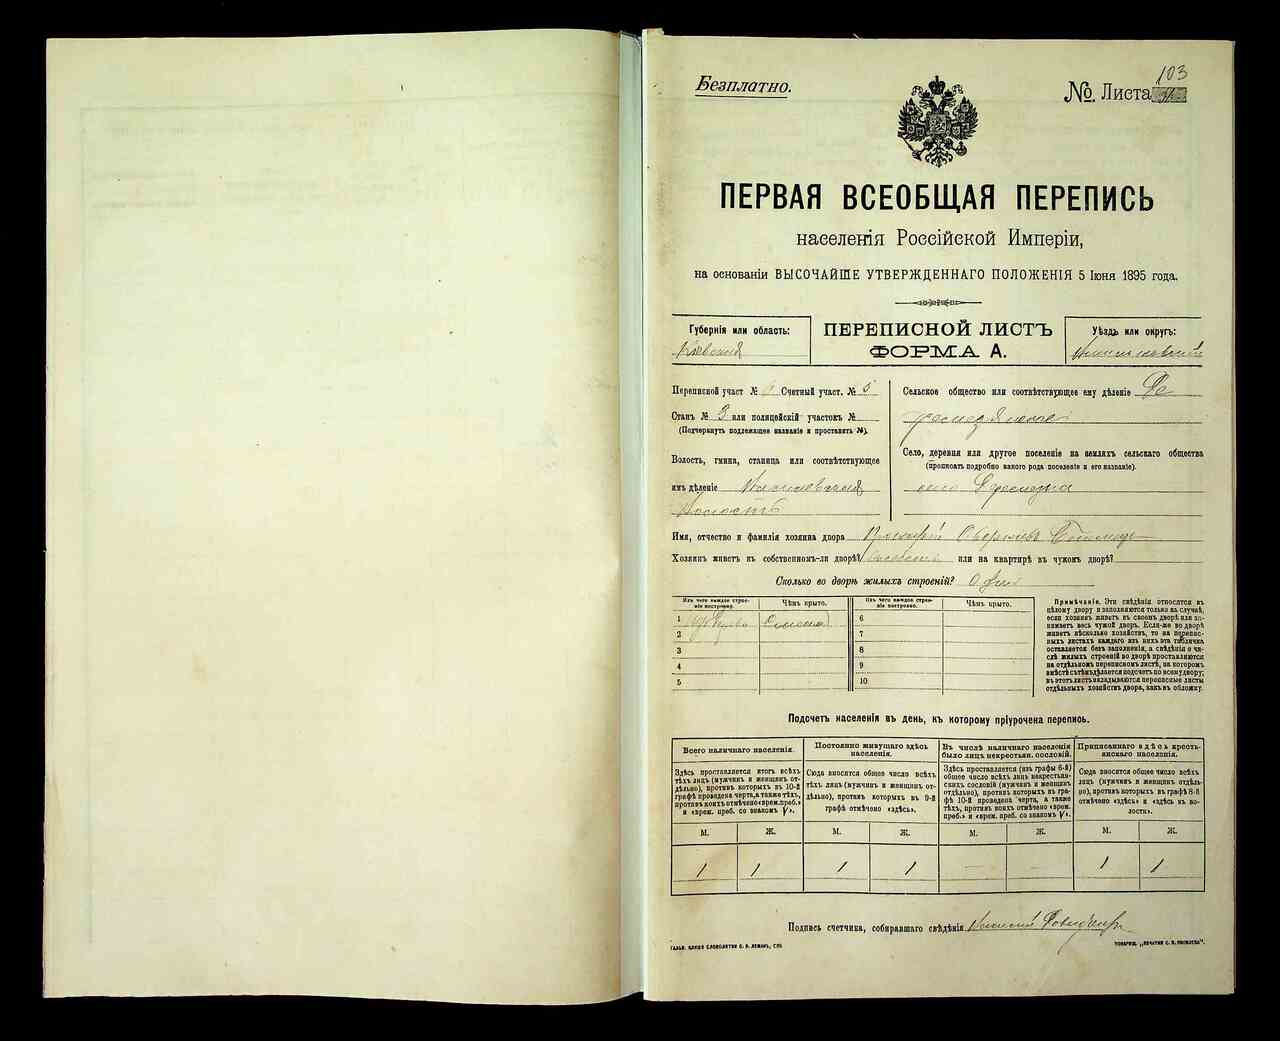 Безплатно.
103
№ Листа
ПЕРВАЯ ВСЕОБЩАЯ ПЕРЕПИСЬ
населенія Россійской Имперіи,
на основаніи ВЫСОЧАЙШЕ УТВЕРЖДЕННАГО ПОЛОЖЕНІЯ 5 Іюня 1895 года.
Губернія или область:
Кіевская
ПЕРЕПИСНОЙ ЛИСТЪ
ФОРМА А.
Уѣздъ или округъ:
Переписной участ № Счетный участ. № 5
Станъ № 3 или полицейскій участокъ №
(Подчеркнуть подлежащее названіе и проставить №).
Волость, гмина, станица или соотвѣтствующее
имъ дѣленіе
Волость
Сельское общество или соотвѣтствующее ему дѣленіе
Село, деревня или другое поселеніе на земляхъ сельскаго общества
(прописать подробно какого рода поселеніе и его названіе).
село
Имя, отчество и фамилія хозяина двора
Хозяинъ живетъ въ собственномъ-ли дворѣ? или на квартирѣ въ чужомъ дворѣ?
Сколько во дворѣ жилыхъ строеній? Одно
Изъ чего каждое строеніе построено.
Чѣмъ крыто.
Изъ чего каждое строеніе построено.
Чѣмъ крыто.
1 Солома 6
2 7
3 8
4 9
5 10
Примѣчаніе. Эти свѣдѣнія относятся къ
цѣлому двору и заполняются только на случай,
если хозяинъ живетъ въ своемъ дворѣ или за-
нимаетъ весь чужой дворъ. Если-же во дворѣ
живетъ нѣсколько хозяйствъ, то на перепис-
ныхъ листахъ каждаго изъ нихъ эта табличка
оставляется безъ заполненія, а свѣдѣнія о чи-
слѣ жилыхъ строеній во дворѣ проставляются
на отдѣльномъ переписномъ листѣ, на которомъ
вмѣстѣ съ тѣмъ дѣлается подсчетъ по всему двору;
въ этотъ листъ вкладываются переписные листы
отдѣльныхъ хозяйствъ двора, какъ въ обложку.
Подсчетъ населенія въ день, къ которому пріурочена перепись.
Всего наличнаго населенія.
Здѣсь проставляется итогъ всѣхъ
тѣхъ лицъ (мужчинъ и женщинъ от-
дѣльно), противъ которыхъ въ 10-й
графѣ проведена черта, а также тѣхъ,
противъ коихъ отмѣчено «врем. преб.»
и «врем. преб. со знакомъ V».
Постоянно живущаго здѣсь
населенія.
Сюда вносится общее число всѣхъ
тѣхъ лицъ (мужчинъ и женщинъ от-
дѣльно), противъ которыхъ въ 9-й
графѣ отмѣчено «здѣсь».
Въ числѣ наличнаго населенія
было лицъ некрестьян. сословій.
Здѣсь проставляется (изъ графы 6-й)
общее число всѣхъ лицъ некрестьян-
скихъ сословій (мужчинъ и женщинъ
отдѣльно), противъ которыхъ въ гра-
фѣ 10-й проведена черта, а также
тѣхъ, противъ коихъ отмѣчено «врем.
преб.» и «врем. преб. со знакомъ V».
Приписаннаго здѣсь кресть-
янскаго населенія.
Сюда вносится общее число всѣхъ
лицъ (мужчинъ и женщинъ отдѣль-
но), противъ которыхъ въ графѣ 8-й
отмѣчено «здѣсь» и «здѣсь въ во-
лости».
М. Ж. М. Ж. М. Ж. М. Ж.
1 1 1 1 — — 1 1
Подпись счетчика, собиравшаго свѣдѣнія
ГАЛЬВ. КЛИШЕ СЛОВОЛИТНИ О. И. ЛЕМАНЪ, СПБ.